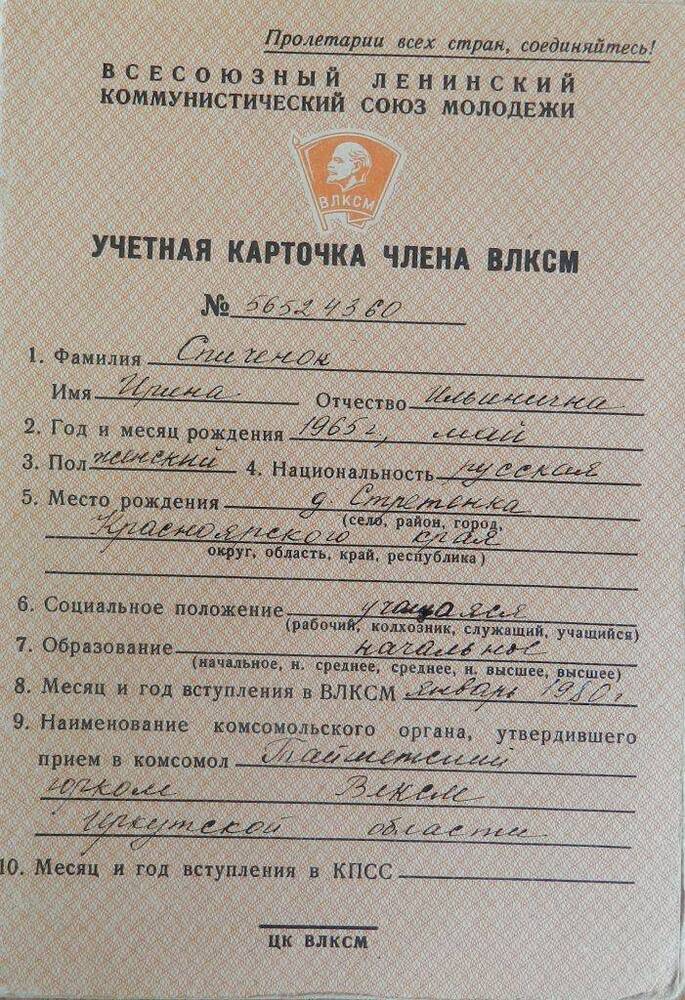 Пролетарии всех стран, соединяйтесь!
ВСЕСОЮЗНЫЙ ЛЕНИНСКИЙ
КОММУНИСТИЧЕСКИЙ СОЮЗ МОЛОДЕЖИ
ВЛКСМ
УЧЕТНАЯ КАРТОЧКА ЧЛЕНА ВЛКСМ
№ 56524360
1. Фамилия Спиченок
Имя Ирина Отчество Ильинична
2. Год и месяц рождения 1965 г., май
3. Пол женский 4. Национальность русская
5. Место рождения д. Стретенка
(село, район, город,
Красноярского края
округ, область, край, республика)
6. Социальное положение учащаяся
(рабочий, колхозник, служащий, учащийся)
7. Образование начальное
(начальное, н. среднее, среднее, н. высшее, высшее)
8. Месяц и год вступления в ВЛКСМ январь 1980 г
9. Наименование комсомольского органа, утвердившего
прием в комсомол Тайшетский
ВЛКСМ
Иркутской области
10. Месяц и год вступления в КПСС
ЦК ВЛКСМ